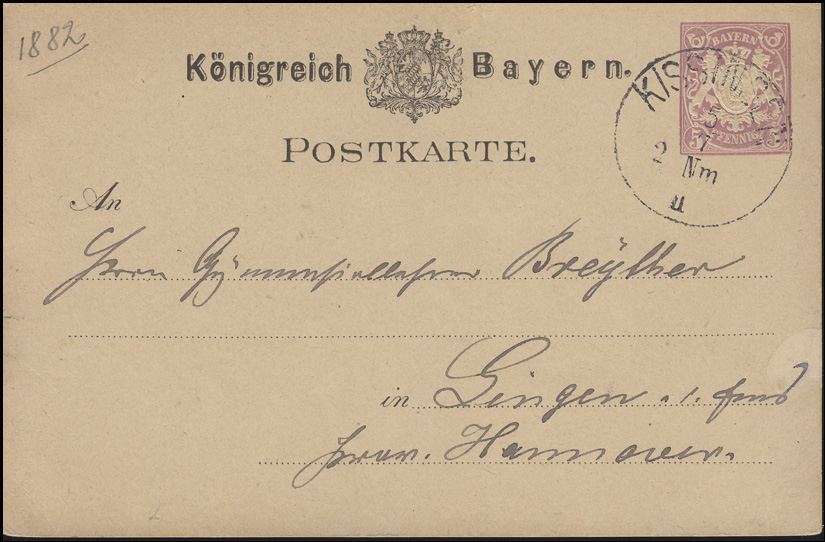 1882
Königreich Bayern.
BAYERN
5 PFENNIG 5
KISSINGEN
5 7
2 Nm
II
POSTKARTE.
An
Herrn Gymnasiallehrer Breyther
in Lingen a. / Ems
Prov. Hannover.